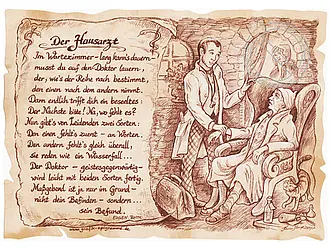 Der Hausarzt
Im Wartezimmer – lang kann's dauern –
musst du auf den Doktor lauern,
der, wie's der Reihe nach bestimmt,
den einen nach dem andern nimmt.
Dann endlich trifft dich ein beseeltes:
Der Nächste bitte! Na, wo fehlt es?
Nun gibt's von Leidenden zwei Sorten:
Den einen fehlt's zumeist – an Worten.
Den andern fehlt's gleich überall,
sie reden wie ein Wasserfall...
Der Doktor – geistesgegenwärtig –
wird leicht mit beiden Sorten fertig.
Maßgebend ist ja nur im Grund –
nicht dein Befinden – sondern...
sein Befund.